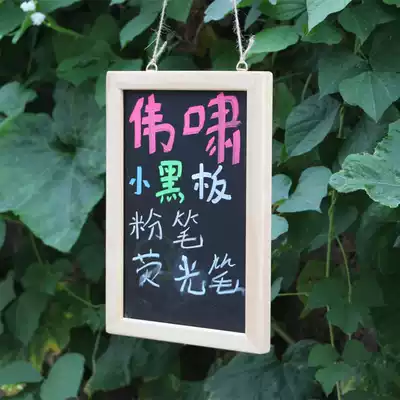 伟啸
小黑板
粉笔
荧光笔